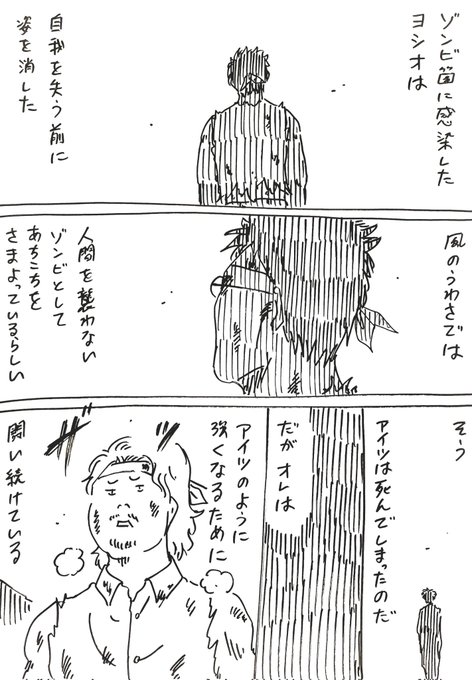 ゾンビ菌に感染した
ヨシオは
自我を失う前に
姿を消した
風のうわさでは
人間を襲わない
ゾンビとして
あちこちを
さまよっているらしい
そう
アイツは死んでしまったのだ
だがオレは
アイツのように
強くなるために
闘い続けている
ザッ